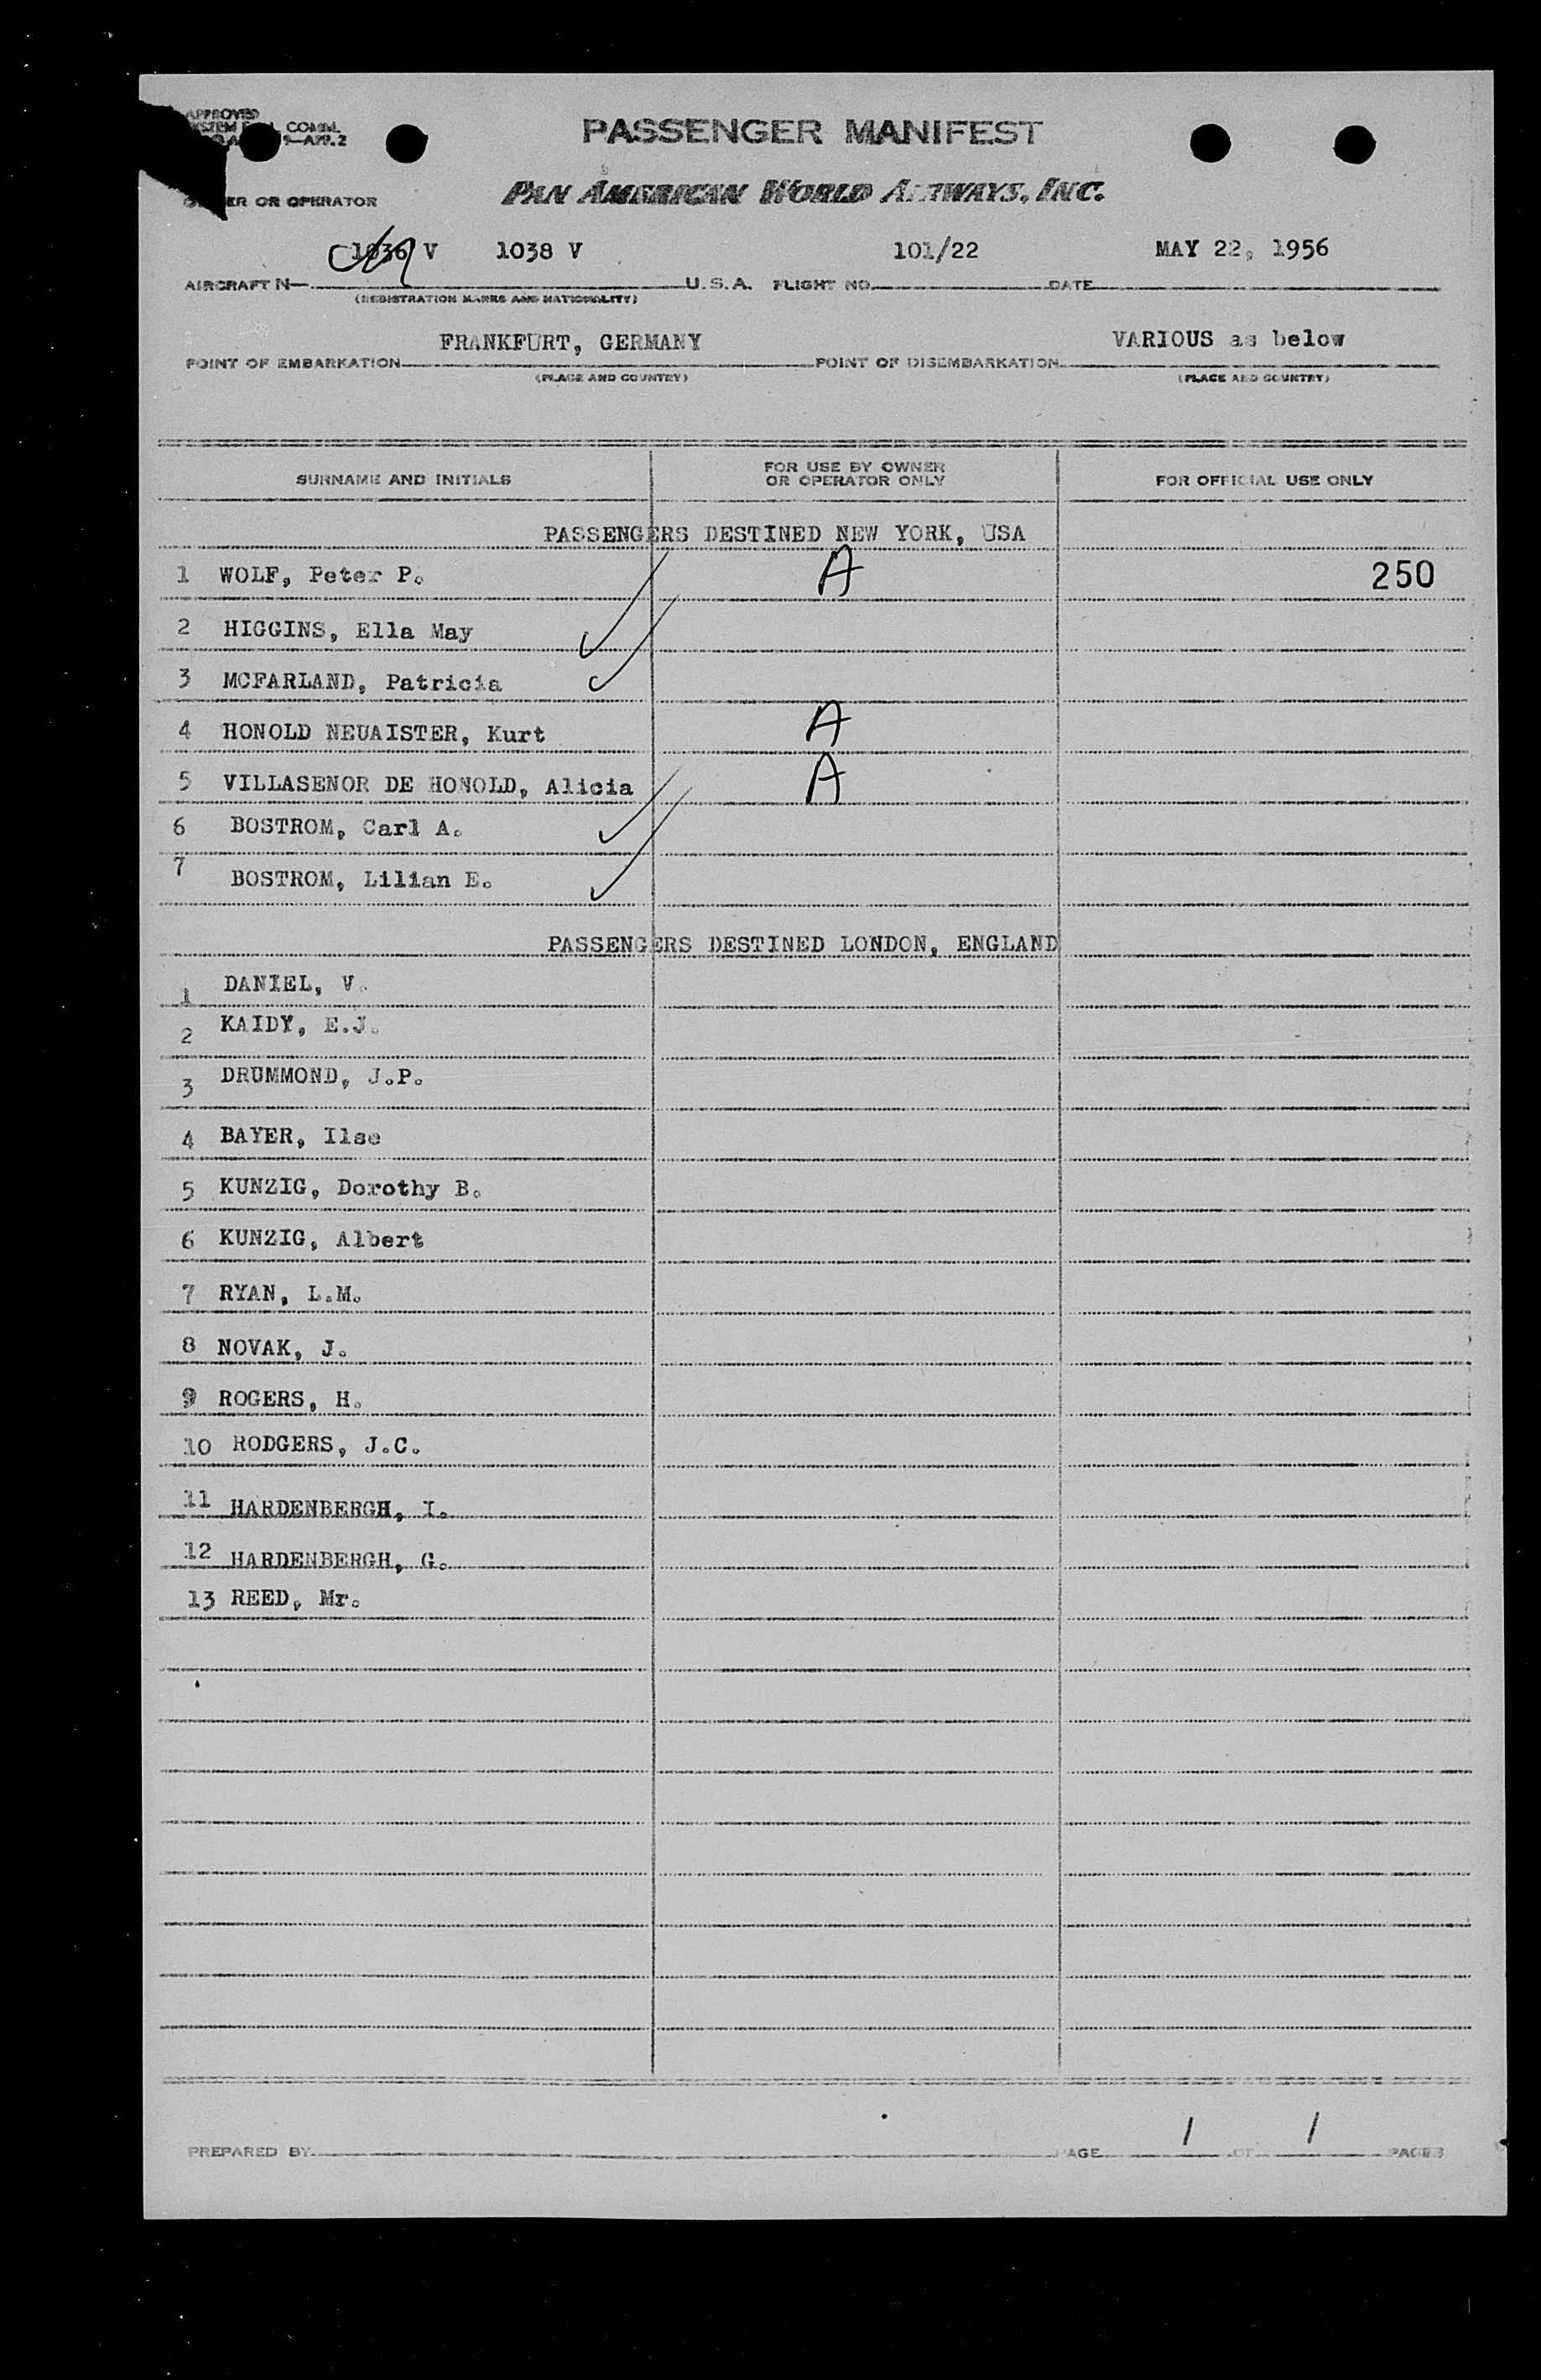 APPROVED
COMM.
PASSENGER MANIFEST
OR OPERATOR PAN AMERICAN WORLD AIRWAYS, INC.
1036 V 1038 V 101/22 MAY 22, 1956
AIRCRAFT N— U.S.A. FLIGHT NO. DATE
(REGISTRATION MARKS AND NATIONALITY)
FRANKFURT, GERMANY VARIOUS as below
POINT OF EMBARKATION POINT OF DISEMBARKATION
(PLACE AND COUNTRY) (PLACE AND COUNTRY)
SURNAME AND INITIALS FOR USE BY OWNER OR OPERATOR ONLY FOR OFFICIAL USE ONLY
PASSENGERS DESTINED NEW YORK, USA
1 WOLF, Peter P. A 250
2 HIGGINS, Ella May
3 MCFARLAND, Patricia
4 HONOLD NEUAISTER, Kurt A
5 VILLASENOR DE HONOLD, Alicia A
6 BOSTROM, Carl A.
7 BOSTROM, Lilian E.
PASSENGERS DESTINED LONDON, ENGLAND
1 DANIEL, V.
2 KAIDY, E.J.
3 DRUMMOND, J.P.
4 BAYER, Ilse
5 KUNZIG, Dorothy B.
6 KUNZIG, Albert
7 RYAN, L.M.
8 NOVAK, J.
9 ROGERS, H.
10 RODGERS, J.C.
11 HARDENBERGH, I.
12 HARDENBERGH, G.
13 REED, Mr.
PREPARED BY PAGE 1 OF 1 PAGES